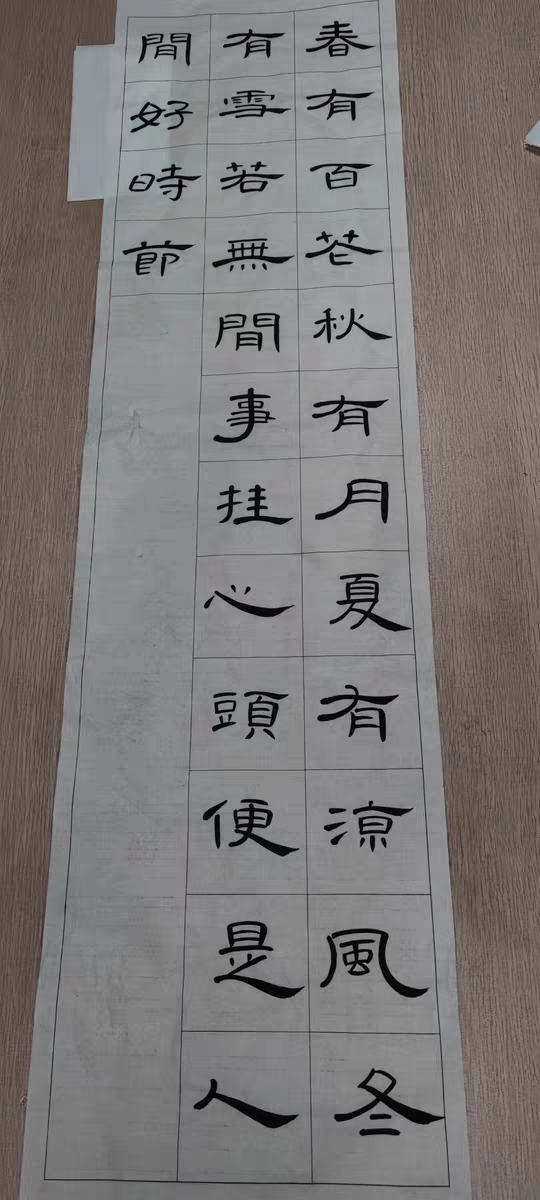 春有百花秋有月夏有涼風冬
有雪若無閒事挂心頭便是人
間好時節